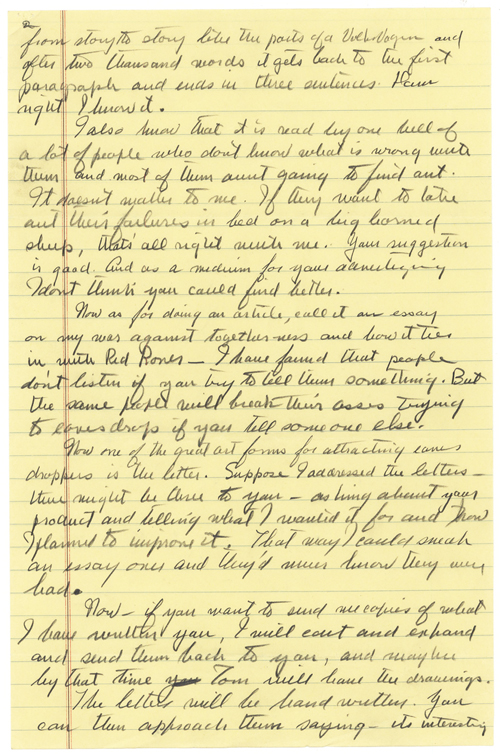 2
from story to story like the parts of a Volkswagen and
after two thousand words it gets back to the first
paragraph and ends in three sentences.
right I know it.
I also know that it is read by one hell of
a lot of people who don't know what is wrong with
them and most of them aint going to find out.
It doesn't matter to me. If they want to take
out their failures in bed on a big horned
sheep, thats all right with me. Your suggestion
is good. And as a medium for your advertizing
I dont think you could find better.
Now as for doing an article, call it an essay
on my war against togetherness and how it ties
in with Red Rones — I have found that people
don't listen if you try to tell them something. But
the same people will break their asses trying
to eavesdrop if you tell someone else.
Now one of the great art forms for attracting eaves
droppers is the letter. Suppose I addressed the letters —
there might be three to you — asking about your
product and telling what I wanted it for and how
I planned to improve it. That way I could sneak
an essay over and they'd never know they were
had.
Now — if you want to send me copies of what
I have written you, I will cut and expand
and send them back to you, and maybe
by that time Tom will have the drawings.
The letters will be hand written. You
can then approach them saying — its interesting